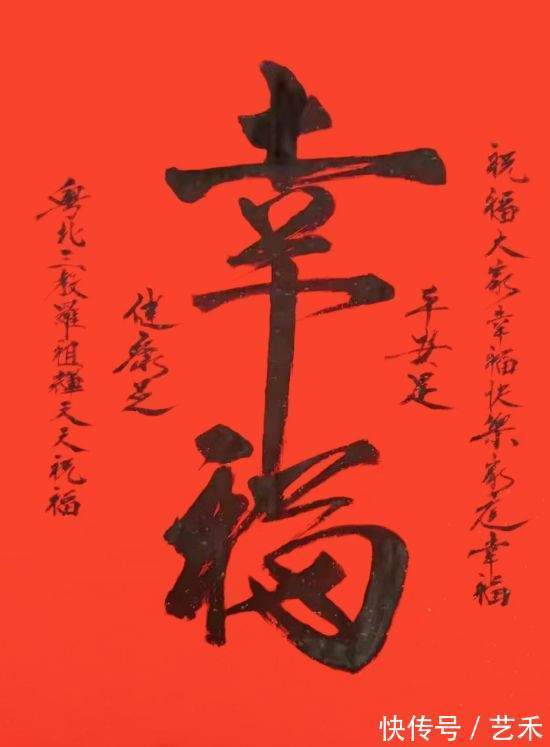 祝福大家幸福快樂家庭幸福
平安是
幸福
健康是
粤北三教羅祖天天祝福
快传号 / 艺禾